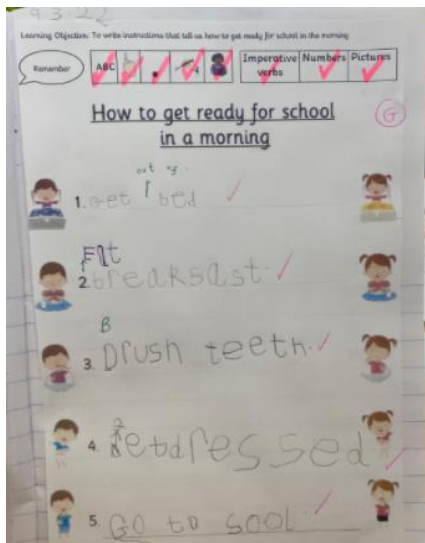 9.3.22
Learning Objective: To write instructions that tell us how to get ready for school in the morning
Remember ABC . Imperative verbs Numbers Pictures
How to get ready for school
in a morning
G
out of
1. Get bed
Eat
2. breaksast.
B
3. Drush teeth.
4. Getdressed
5. Go to sool.